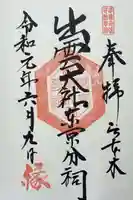 奉拝
六本木
出雲大社東京分祠
令和元年六月九日
縁